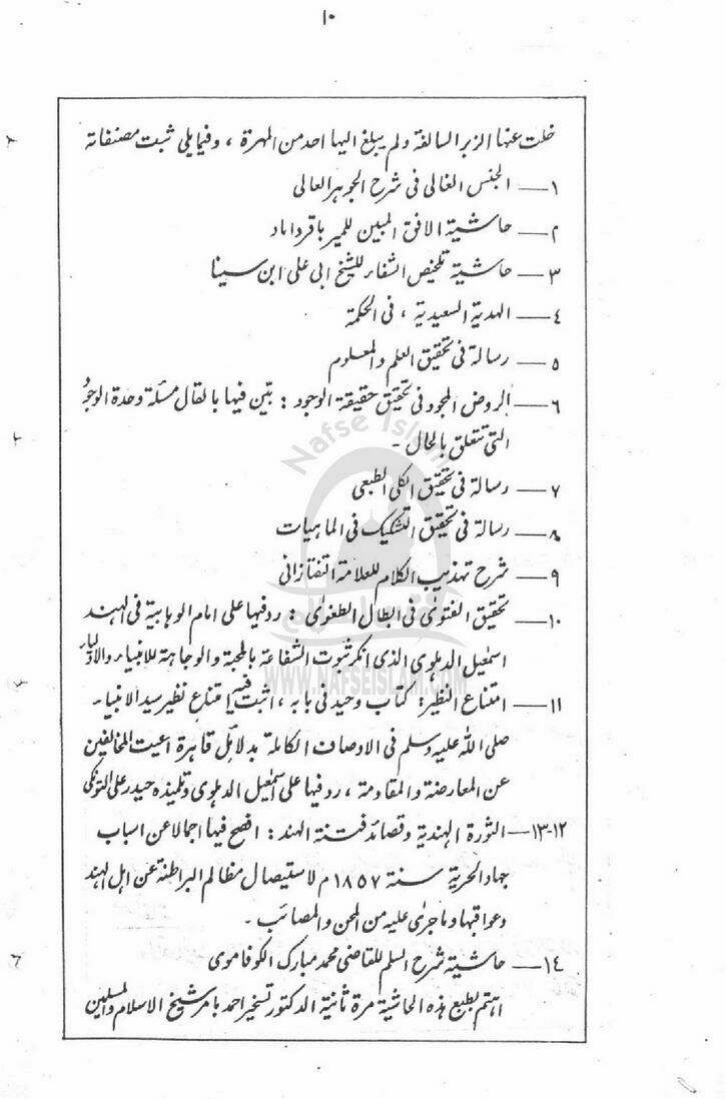 ١٠
خلت عنها الزبر السالفة ولم يبلغ اليها احد من المهرة ، وفيما يلى ثبت مصنفاته
١— الجنس الغالى فى شرح الجوهر العالى
٢— حاشية الافق المبين للمير باقر داماد
٣— حاشية تلخيص الشفاء للشيخ ابى على ابن سينا
٤— الهدية السعيدية ، فى الحكمة
٥— رسالة فى تحقيق العلم والمعلوم
٦— الروض المجود فى تحقيق حقيقة الوجود : بيّن فيها بالقال مسئلة وحدة الوجود
التى تتعلق بالحال -
٧— رسالة فى تحقيق الكلى الطبعى
٨— رسالة فى تحقيق التشكيك فى الماهيات
٩— شرح تهذيب الكلام للعلامة التفتازانى
١٠— تحقيق الفتوىٰ فى ابطال الطغوىٰ : رد فيها على امام الوهابية فى الهند
اسمٰعيل الدهلوى الذى انكر ثبوت الشفاعة بالمحبة والوجاهة للانبياء والاولياء
١١— امتناع النظير: كتاب وحيد فى بابه ، اثبت فيه امتناع نظير سيد الانبياء -
صلى الله عليه وسلم فى الاوصاف الكاملة بدلائل قاهرة اعيت المخالفين
عن المعارضة والمقاومة ، رد فيها على اسمٰعيل الدهلوى وتلميذه حيدر على التونكى
١٢-١٣— الثورة الهندية وقصائد فتنة الهند : افصح فيها اجمالا عن اسباب
جهاد الحرية سنة ١٨٥٧م لاستيصال مظالم البراطنة عن اهل الهند
وعواقبها وما جرىٰ عليه من المحن والمصائب -
١٤— حاشية شرح السلم للقاضى محمد مبارك الكوفاموى
اهتم بطبع هذه الحاشية مرة ثانية الدكتور تسخير احمد بامر شيخ الاسلام والمسلمين
Nafse Islam
WWW.NAFSEISLAM.COM